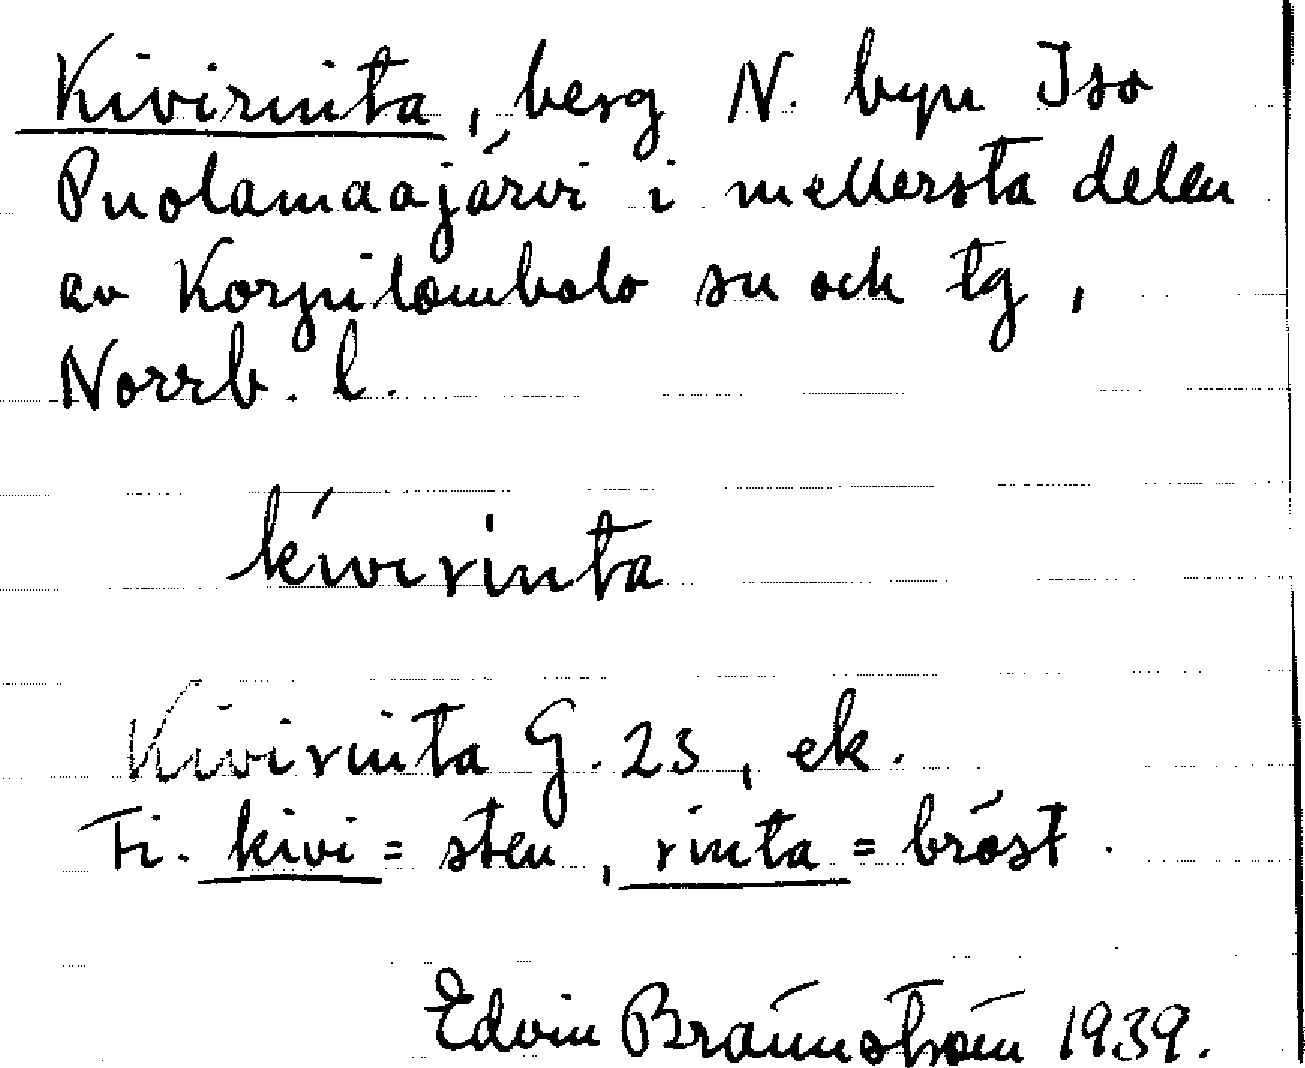 Kivirinta, berg N. byn Iso
Puolamaajärvi i mellersta delen
av Korpilombolo sn och tg,
Norrb. l.
kívirinta
Kivirinta G. 23, ek.
Fi. kivi = sten, rinta = bröst.
Edvin Brännström 1939.